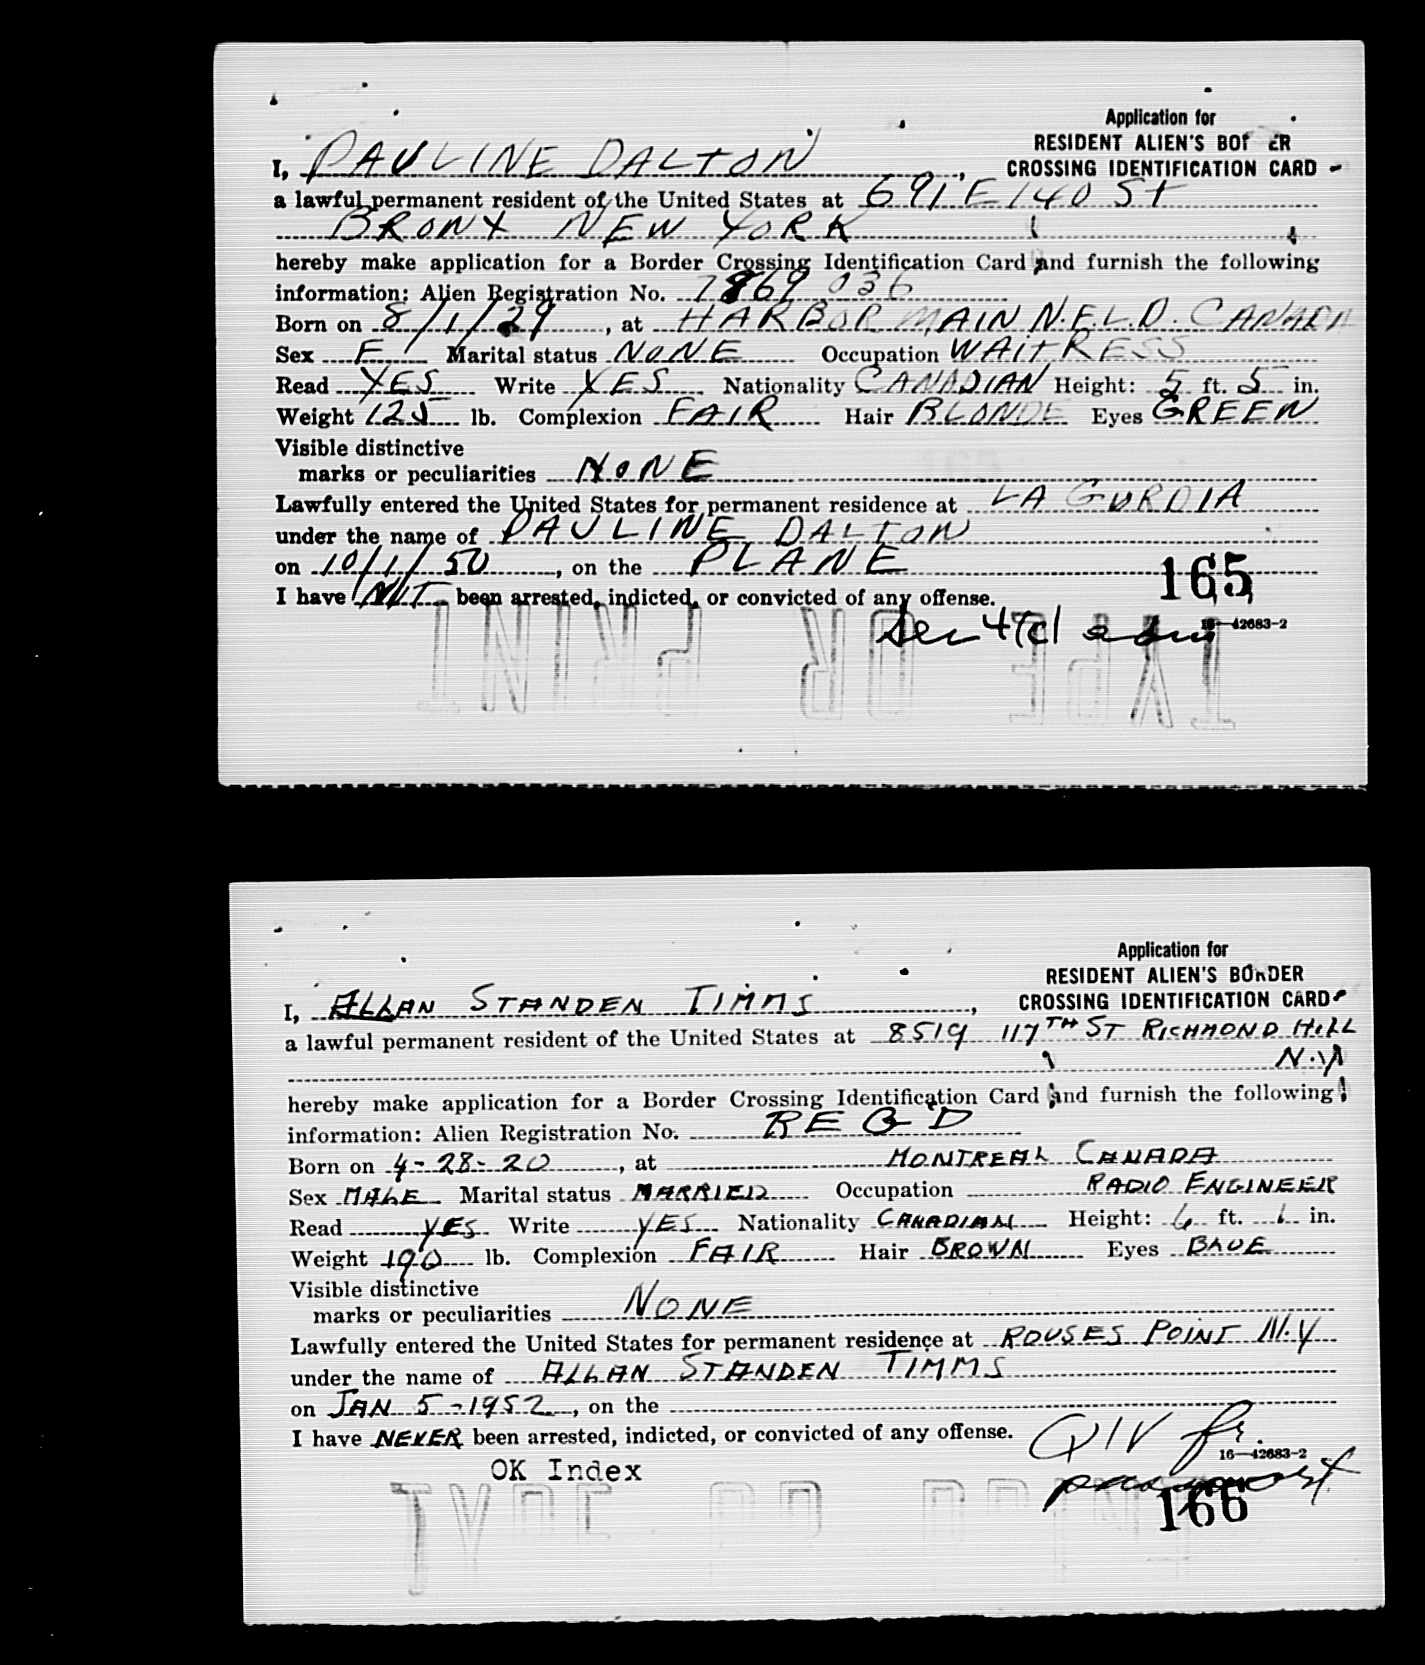 Application for
RESIDENT ALIEN'S BOR ER
CROSSING IDENTIFICATION CARD
I, PAULINE DALTON,
a lawful permanent resident of the United States at 691 E 140 St
BRONX NEW YORK
hereby make application for a Border Crossing Identification Card and furnish the following
information: Alien Registration No. 7869 036
Born on 8/1/29, at HARBOR MAIN N.F.L.D. CANADA
Sex F Marital status NONE Occupation WAITRESS
Read YES Write YES Nationality CANADIAN Height: 5 ft. 5 in.
Weight 125 lb. Complexion FAIR Hair BLONDE Eyes GREEN
Visible distinctive
marks or peculiarities NONE
Lawfully entered the United States for permanent residence at LA GURDIA
under the name of PAULINE DALTON
on 10/1/50, on the PLANE
165
I have NOT been arrested, indicted, or convicted of any offense.
16—42683-2
TYPE OR PRINT
Application for
RESIDENT ALIEN'S BORDER
CROSSING IDENTIFICATION CARD
I, ALLAN STANDEN TIMMS,
a lawful permanent resident of the United States at 8519 117TH ST RICHMOND HILL
N.Y
hereby make application for a Border Crossing Identification Card and furnish the following
information: Alien Registration No. REG D
Born on 4-28-20, at MONTREAL CANADA
Sex MALE Marital status MARRIED Occupation RADIO ENGINEER
Read YES Write YES Nationality CANADIAN Height: 6 ft. 1 in.
Weight 190 lb. Complexion FAIR Hair BROWN Eyes BLUE
Visible distinctive
marks or peculiarities NONE
Lawfully entered the United States for permanent residence at ROUSES POINT N.Y
under the name of ALLAN STANDEN TIMMS
on JAN 5-1952, on the
I have NEVER been arrested, indicted, or convicted of any offense.
16—42683-2
OK Index
passport
166
TYPE OR PRINT